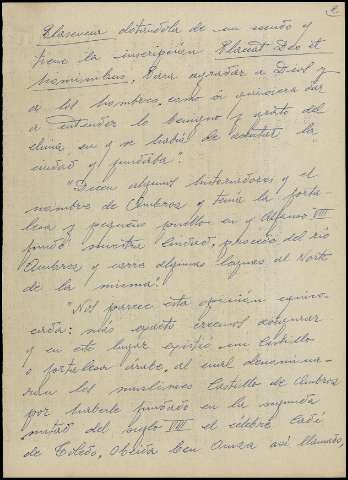 2
Plasencia dotándola de un escudo y
tiene la inscripción Placeat Deo et
hominibus, Para agradar a Dios y
a los hombres, como si quisiera dar
a entender lo benigno y grato del
clima en q se había de asentar la
ciudad q fundaba".
"Creen algunos historiadores q el
nombre de Ambroz q tenía la forta-
leza y pequeño pueblo en q Alfonso VIII
fundó nuestra Ciudad, procedía del río
Ambroz q corre algunas leguas al Norte
de la misma".
"Nos parece esta opinión equivo-
cada: más exacto creemos asegurar
q en este lugar existió un Castillo
o fortaleza árabe, al cual denomina-
ron los muslimes Castillo de Ambroz
por haberle fundado en la segunda
mitad del siglo VIII el célebre Cadí
de Toledo, Obeida ben Amza así llamado,